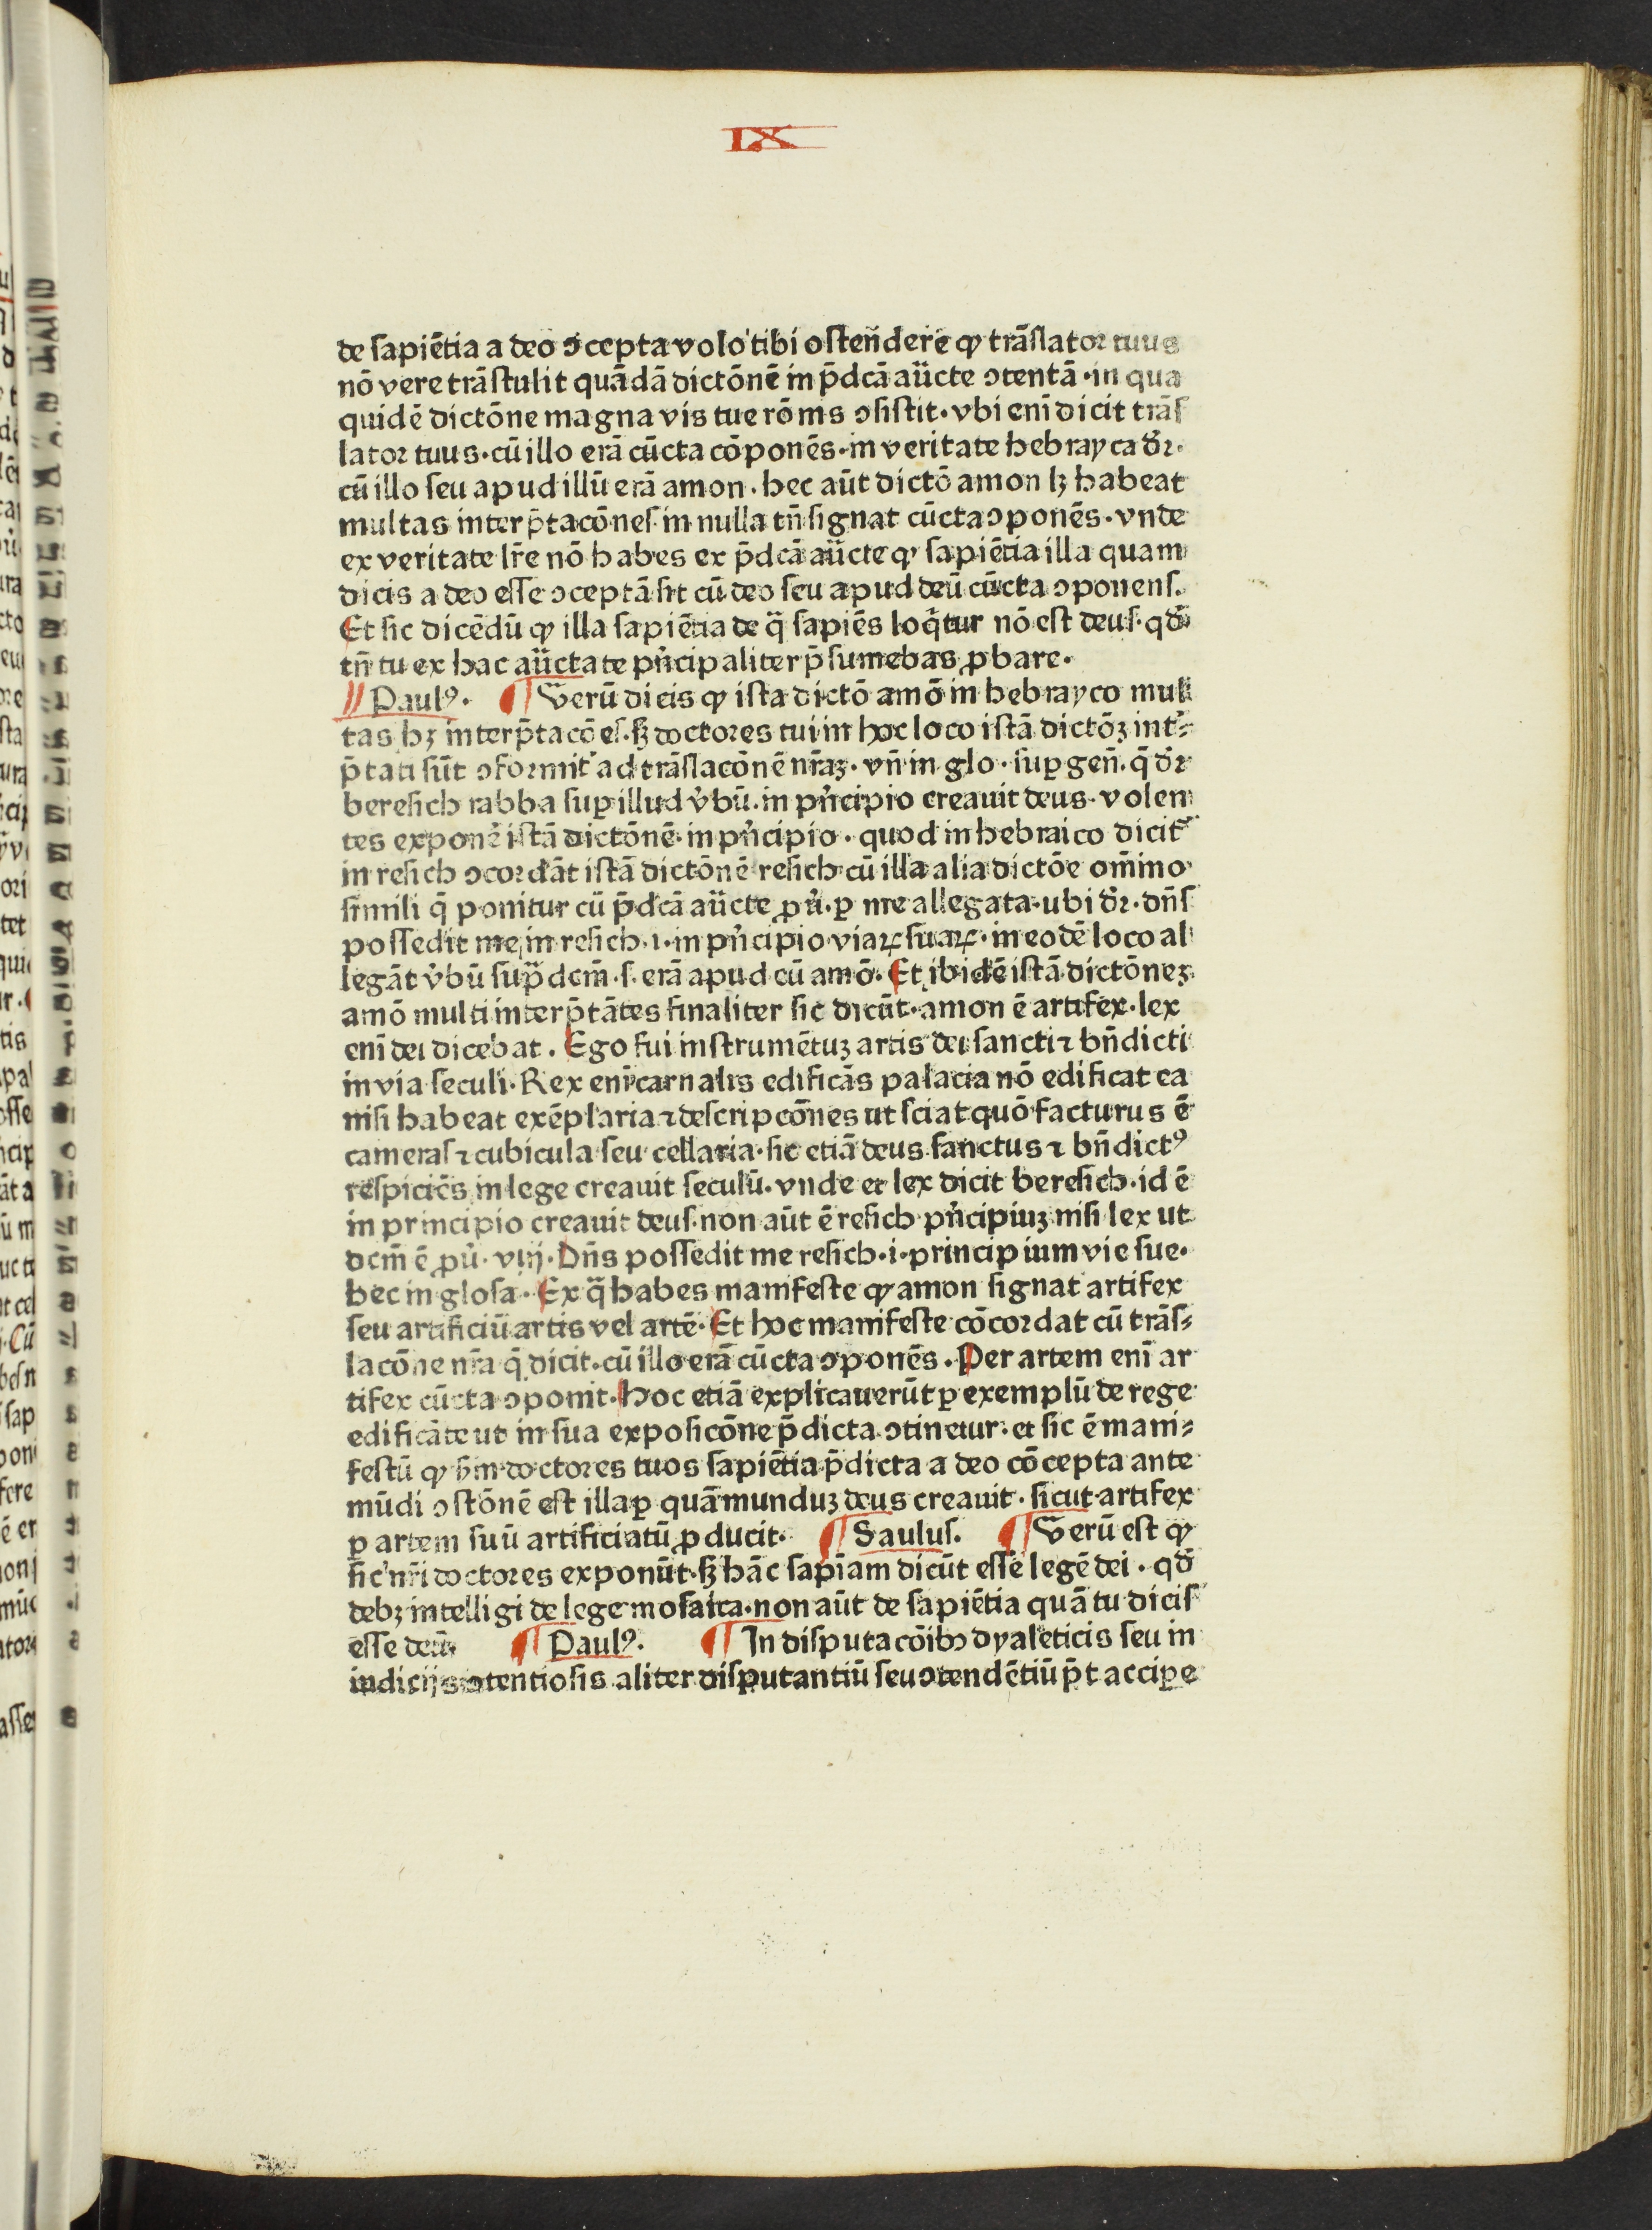 IX
de ſapiētia a deo ɔcepta volo tibi oſtendere ꝙ trāſlator tuus
nō vere trāſtulit quādā dictōnē in p̄dcā aūcte ɔtentā · in qua
quidē dictōne magna vis tue rōnis ɔſiſtit · vbi eni̅ dicit trāſ
lator tuus · cū illo erā cūcta cōponēs · in veritate hebrayca dr̄ ·
cū illo ſeu apud illū erā amon · hec aūt dictō amon lꝫ habeat
multas interp̄tacōneſ · in nulla tn̄ ſignat cūcta ɔponēs · vnde
ex veritate lr̄e nō habes ex p̄dcā aūcte ꝙ ſapiētia illa quam
dicis a deo eſſe ɔceptā ſit cū deo ſeu apud deū cūcta ɔponenſ.
Et ſic dicēdū ꝙ illa ſapiētia de q̄ ſapiēs loq̄tur nō eſt deuſ · qd̄
tn̄ tu ex hac aūctate pn̄cipaliter p̄ſumebas ꝓbare ·
Paulꝰ · ¶ Verū dicis ꝙ iſta dictō amō in hebrayco mul
tas hꝫ interp̄tacōeſ · ſꝫ doctores tui in hoc loco iſtā dictōꝫ int̄⸗
p̄tati ſūt ɔformit̄ ad trāſlacōnē nr̄aꝫ · vn̄ in glo · ſuꝑ gen̄ · q̄ dr̄
bereſich rabba ſuꝑ illud v̄bū · in pn̄cipio creauit deus · volen
tes exponē iſtā dictōnē · in pn̄cipio · quod in hebraico dicit̄
in reſich ɔcordāt iſtā dictōnē reſich cū illa alia dictōe om̄ino
ſimili q̄ ponitur cū p̄dcā aūcte ꝓū · ꝑ me allegata · ubi dr̄ · dn̄ſ
poſſedit me in reſich · ı · in pn̄cipio viaꝝ ſuaꝝ · in eodē loco al
legāt v̄bū ſup̄dcm̄ · ſ · erā apud eū amō · Et ibidē iſtā dictōneꝫ
amō multi interp̄tātes finaliter ſic dicūt · amon ē artifex · lex
eni̅ dei dicebat . Ego fui inſtrumētuꝫ artis dei ſancti ⁊ bn̄dicti
in via ſeculi · Rex eni̅ carnalis edificās palacia nō edificat ea
niſi habeat exēplaria ⁊ deſcripcōnes ut ſciat quō facturus ē
cameraſ ⁊ cubicula ſeu cellaria · ſic etiā deus ſanctus ⁊ bn̄dictꝰ
reſpiciēs in lege creauit ſeculū · vnde et lex dicit bereſich · id ē
in principio creauit deuſ · non aūt ē reſich pn̄cipiuꝫ niſi lex ut
dcm̄ ē ꝓū · viij · Dn̄s poſſedit me reſich · i · principium vie ſue ·
hec in gloſa · Ex q̄ habes manifeſte ꝙ amon ſignat artifex
ſeu artificiū artis vel artē · Et hoc manifeſte cōcordat cū trāſ⸗
lacōne nr̄a q̄ dicit · cū illo erā cūcta ɔponēs . Per artem eni̅ ar
tifex cūcta ɔponit · Hoc etiā explicauerūt ꝑ exemplū de rege
edificāte ut in ſua expoſicōne p̄dicta ɔtinetur · et ſic ē mani⸗
feſtū ꝙ ſm̄ doctores tuos ſapiētia p̄dicta a deo cōcepta ante
mūdi ɔſtōnē eſt illa ꝑ quā munduꝫ deus creauit · ſicut artifex
ꝑ artem ſuū artificiatū ꝓducit · ¶ Saulus. ¶ Verū eſt ꝙ
ſic nr̄i doctores exponūt · ſꝫ hāc ſapi̅am dicūt eſſe legē dei · qd̄
debꝫ intelligi de lege moſaica · non aūt de ſapiētia quā tu diciſ
eſſe deū · ¶ Paulꝰ. ¶ In diſputacōibꝫ dyaleticis ſeu in
iudicijs ɔtentioſis aliter diſputantiū ſeu ɔtendētiū p̄t accipe